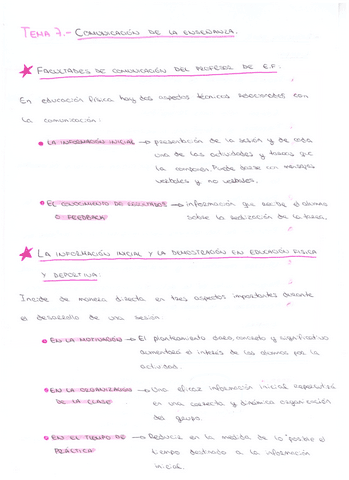 TEMA 7.- COMUNICACIÓN DE LA ENSEÑANZA.
★ FACULTADES DE COMUNICACIÓN DEL PROFESOR DE E.F:
En educación física hay dos aspectos técnicos relacionados con
la comunicación:
• LA INFORMACIÓN INICIAL → presentación de la sesión y de cada
una de las actividades y tareas que
la componen. Puede darse con mensajes
verbales y no verbales.
• EL CONOCIMIENTO DE RESULTADOS → información que recibe el alumno
O FEEDBACK sobre la realización de la tarea.
★ LA INFORMACIÓN INICIAL Y LA DEMOSTRACIÓN EN EDUCACIÓN FÍSICA
Y DEPORTIVA:
Incide de manera directa en tres aspectos importantes durante
el desarrollo de una sesión:
• EN LA MOTIVACIÓN → El planteamiento claro, concreto y significativo
aumentará el interés de los alumnos por la
actividad.
• EN LA ORGANIZACIÓN → Una eficaz información inicial repercutirá
DE LA CLASE en una correcta y dinámica organización
del grupo.
• EN EL TIEMPO DE → Reducir en la medida de lo posible el
PRÁCTICA tiempo destinado a la información
inicial.